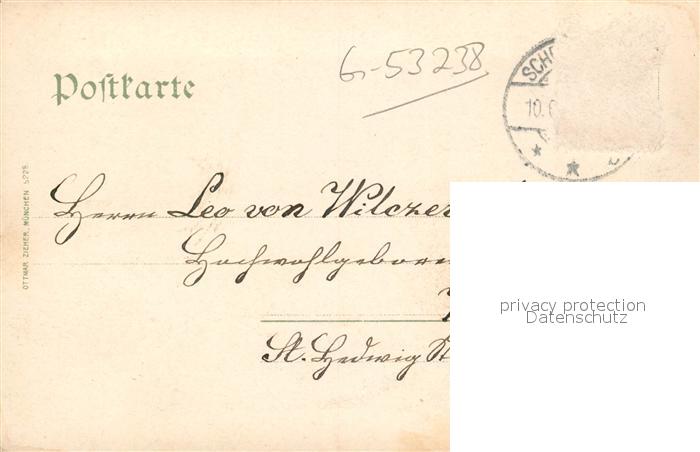 G-53238
Postkarte
SCH
10.
OTTMAR ZIEHER, MÜNCHEN 5228
Herrn Leo von Wilcze
Hochwohlgeboren
St. Hedwig St
privacy protection
Datenschutz